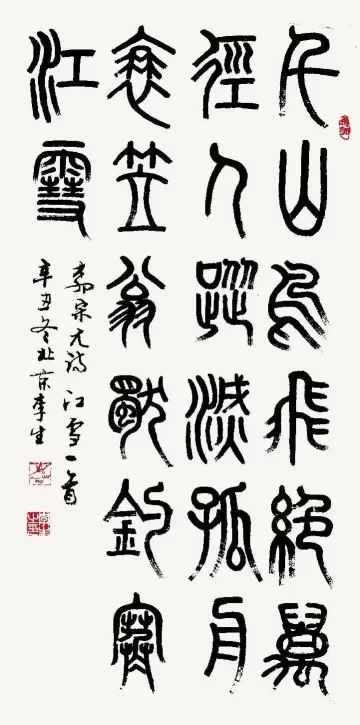 千山鳥飛絕萬
徑人蹤滅孤舟
蓑笠翁獨釣寒
江雪
柳宗元詩江雪一首
辛丑冬北京李生